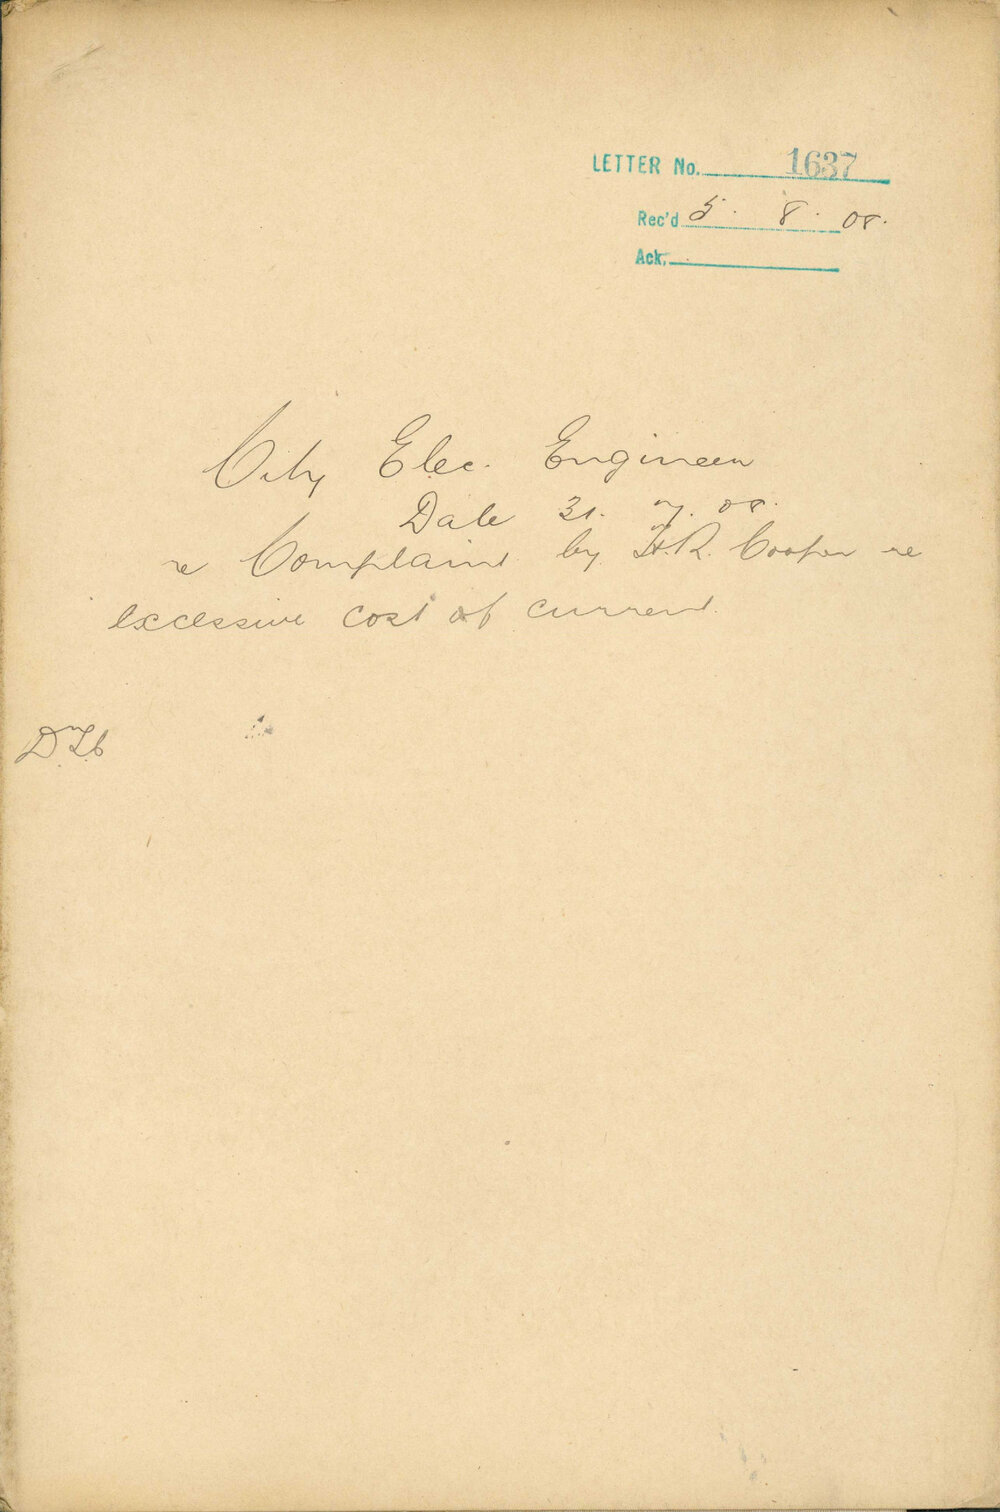 LETTER No. 1637
Rec'd 5. 8. 08.
Ack.
City Elec. Engineer
Date 31. 7. 08.
re Complaint by H.R. Cooper re
excessive cost of current.